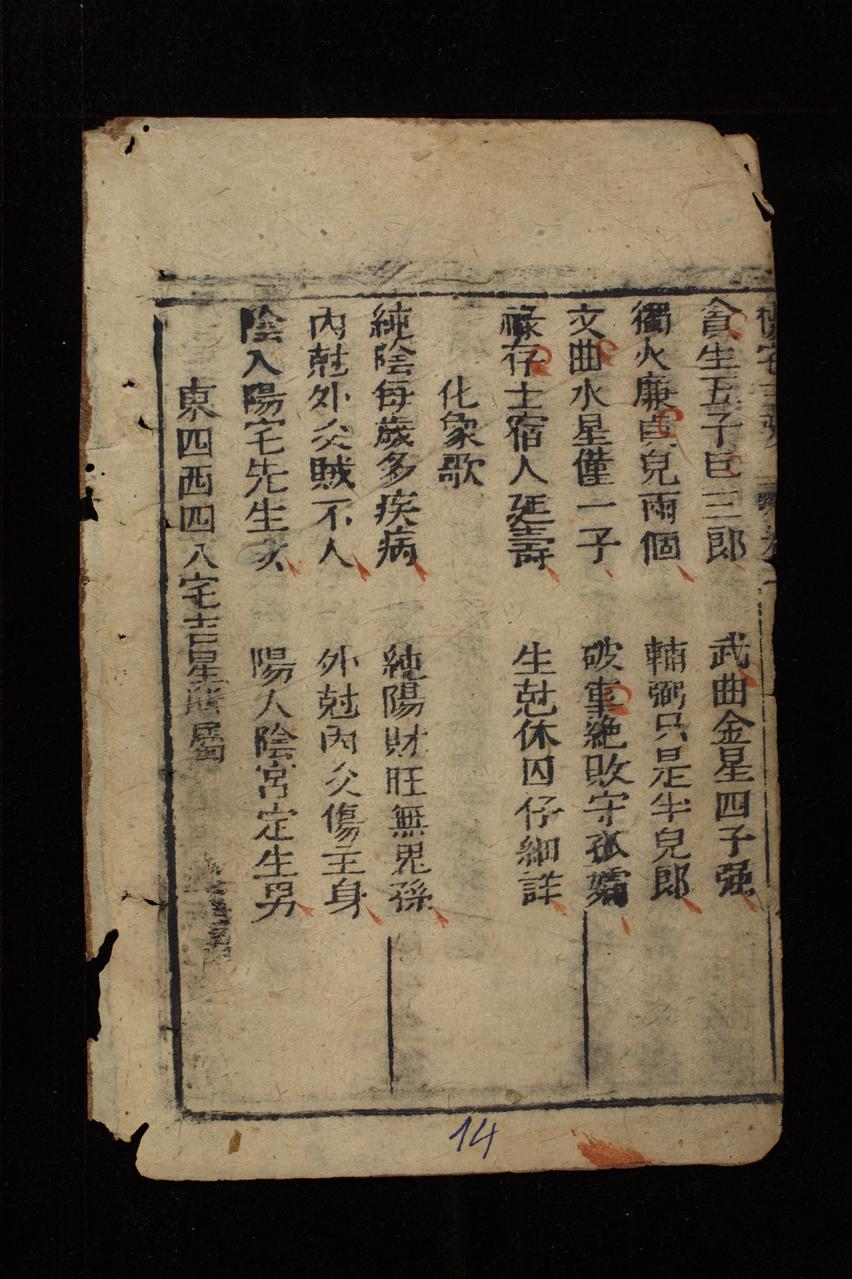 貪生五子巨三郎　武曲金星四子强
獨火廉貞兒兩個　輔弼只是半兒郎
文曲水星僅一子　破軍絶敗守孤孀
祿存土宿人延壽　生尅休囚仔細詳
化象歌
純陰每歲多疾病　純陽財旺無児孫
內尅外分賊不入　外尅內分傷主身
陰入陽宅先生女　陽入陰宮定生男
東四西四八宅吉星所屬
14